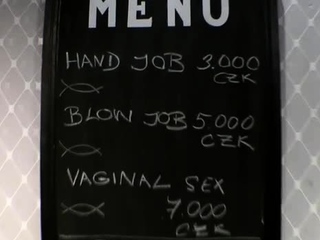 MENU
HAND JOB 3.000
CZK
BLOW JOB 5.000
CZK
VAGINAL SEX
7.000
CZK